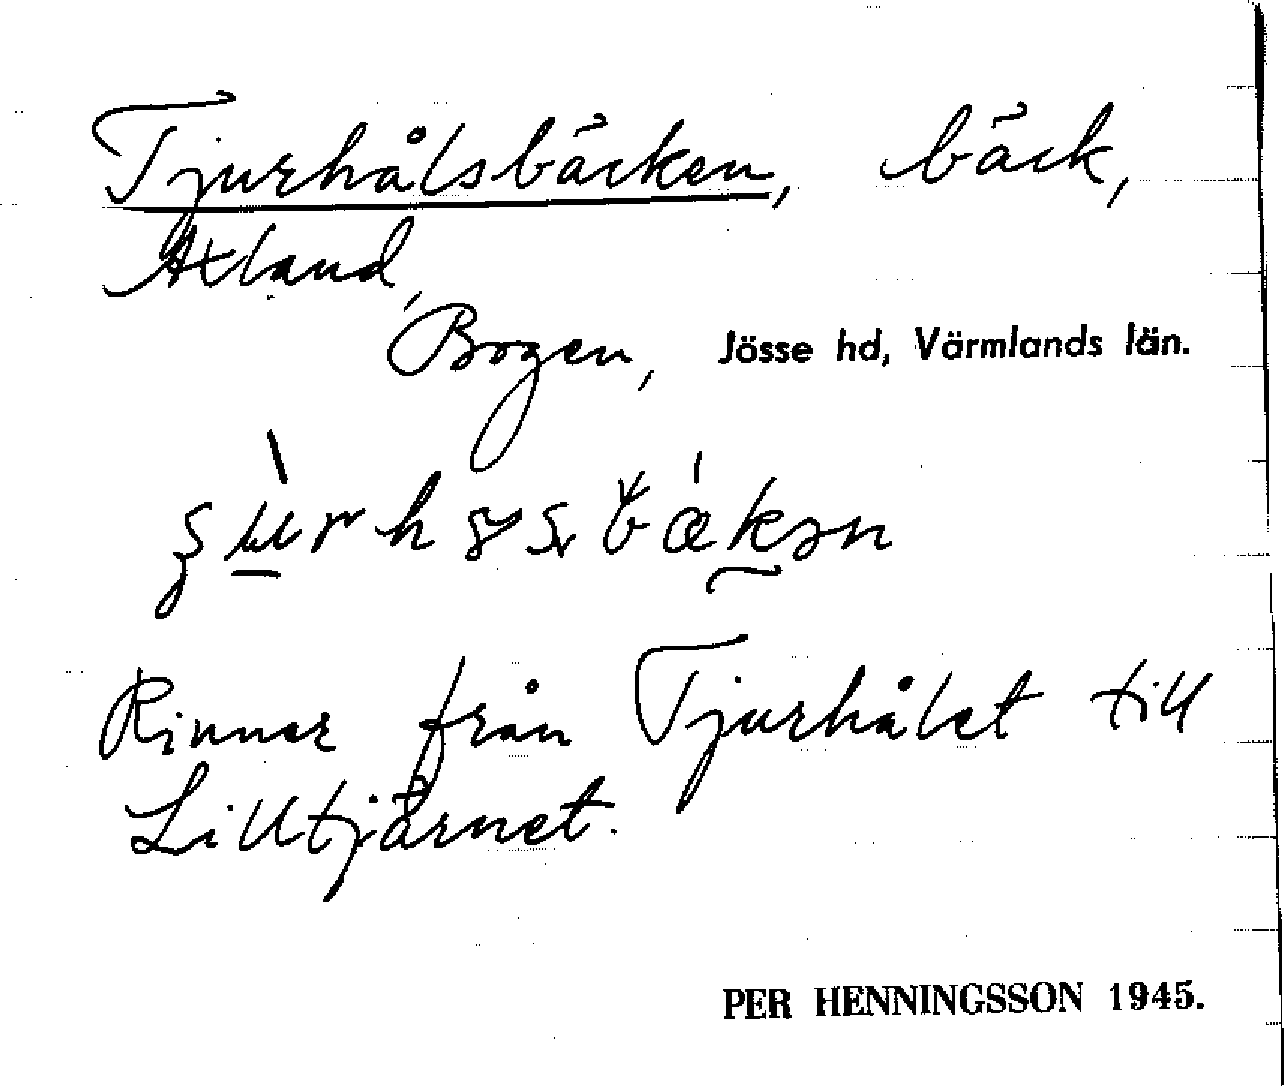 Tjurhålsbäcken, bäck,
Axland,
Bogen, Jössse hd, Värmlands län.
Rinner från Tjurhålet till
Lilltjärnet.
PER HENNINGSSON 1945.